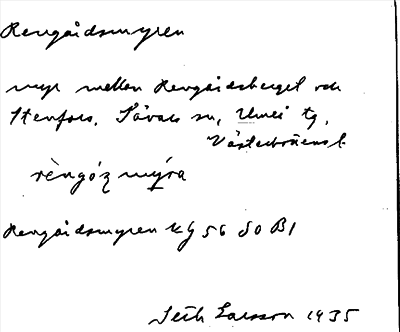 Rengårdsmyren
myr mellan Rengårdsberget och
Stenfors. Sävar sn, Umeå tg,
Västerbottens l.
rèngóz mýra
Rengårdsmyren kg 56 SO B1
Seth Larsson 1935